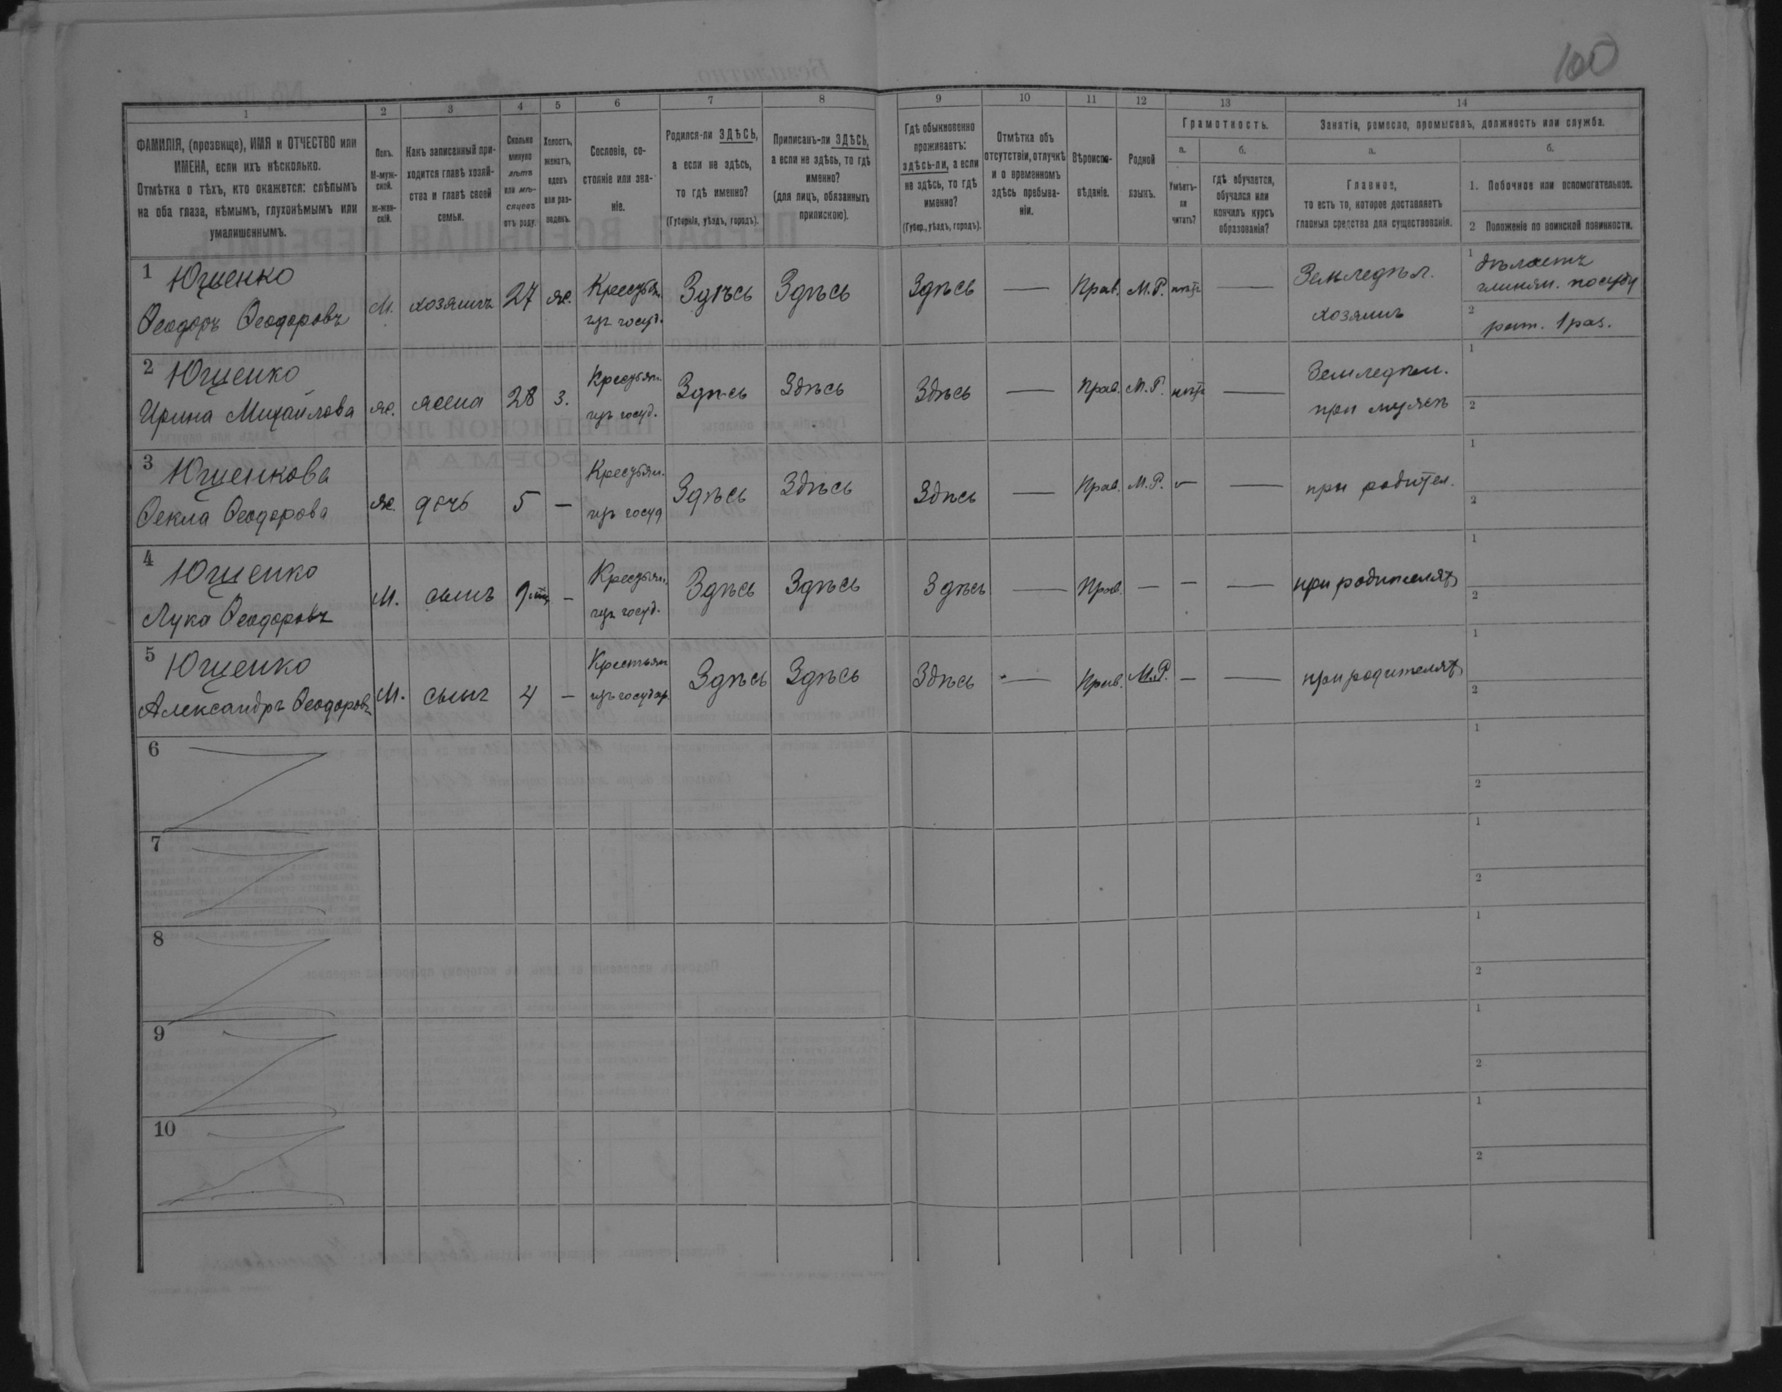 100
1 2 3 4 5 6 7 8 9 10 11 12 13 14
ФАМИЛІЯ, (прозвище), ИМЯ и ОТЧЕСТВО или
ИМЕНА, если ихъ нѣсколько.
Отмѣтка о тѣхъ, кто окажется: слѣпымъ
на оба глаза, нѣмымъ, глухонѣмымъ или
умалишеннымъ.
Полъ.
М-муж-
ской.
ж-жен-
скій.
Какъ записанный при-
ходится главѣ хозяй-
ства и главѣ своей
семьи.
Сколько
минуло
лѣтъ
или мѣ-
сяцевъ
отъ роду.
Холостъ,
женатъ,
вдовъ
или раз-
веденъ.
Сословіе, со-
стояніе или зва-
ніе.
Родился-ли ЗДѢСЬ,
а если не здѣсь,
то гдѣ именно?
(Губернія, уѣздъ, городъ).
Приписанъ-ли ЗДѢСЬ,
а если не здѣсь, то гдѣ
именно?
(для лицъ, обязанныхъ
припискою).
Гдѣ обыкновенно
проживаетъ:
здѣсь-ли, а если
не здѣсь, то гдѣ
именно?
(Губер., уѣздъ, городъ).
Отмѣтка объ
отсутствіи, отлучкѣ
и о временномъ
здѣсь пребыва-
ніи.
Вѣроиспо-
вѣданіе.
Родной
языкъ.
Грамотность.
а.
Умѣетъ-
ли
читать?
б.
гдѣ обучается,
обучался или
кончилъ курсъ
образованія?
Занятіе, ремесло, промыселъ, должность или служба.
а.
Главное,
то есть то, которое доставляетъ
главныя средства для существованія.
б.
1. Побочное или вспомогательное.
2 Положеніе по воинской повинности.
1 Ющенко
Ѳеодоръ Ѳеодоровъ М. хозяинъ 27 ж. Крестьян. изъ госуд. Здѣсь Здѣсь Здѣсь — Прав. М.Р. нѣтъ — Земледѣл. хозяинъ
1 дѣлаетъ глинян. посуду
2 ратн. 1 раз.
2 Ющенко
Ирина Михайлова ж. жена 28 з. Крестьян. изъ госуд. Здѣсь Здѣсь Здѣсь — Прав. М.Р. нѣтъ — Земледѣл. при мужѣ
1
2
3 Ющенкова
Ѳекла Ѳеодорова ж. дочь 5 — Крестьян. изъ госуд Здѣсь Здѣсь Здѣсь — Прав. М.Р. — — при родител.
1
2
4 Ющенко
Лука Ѳеодоровъ М. сынъ — Крестьян. изъ госуд. Здѣсь Здѣсь Здѣсь — Прав. — — — при родителяхъ
1
2
5 Ющенко
Александръ Ѳеодоровъ М. сынъ 4 — Крестьян изъ государ Здѣсь Здѣсь Здѣсь — Прав. М.Р. — — при родителяхъ
1
2
6
1
2
7
1
2
8
1
2
9
1
2
10
1
2